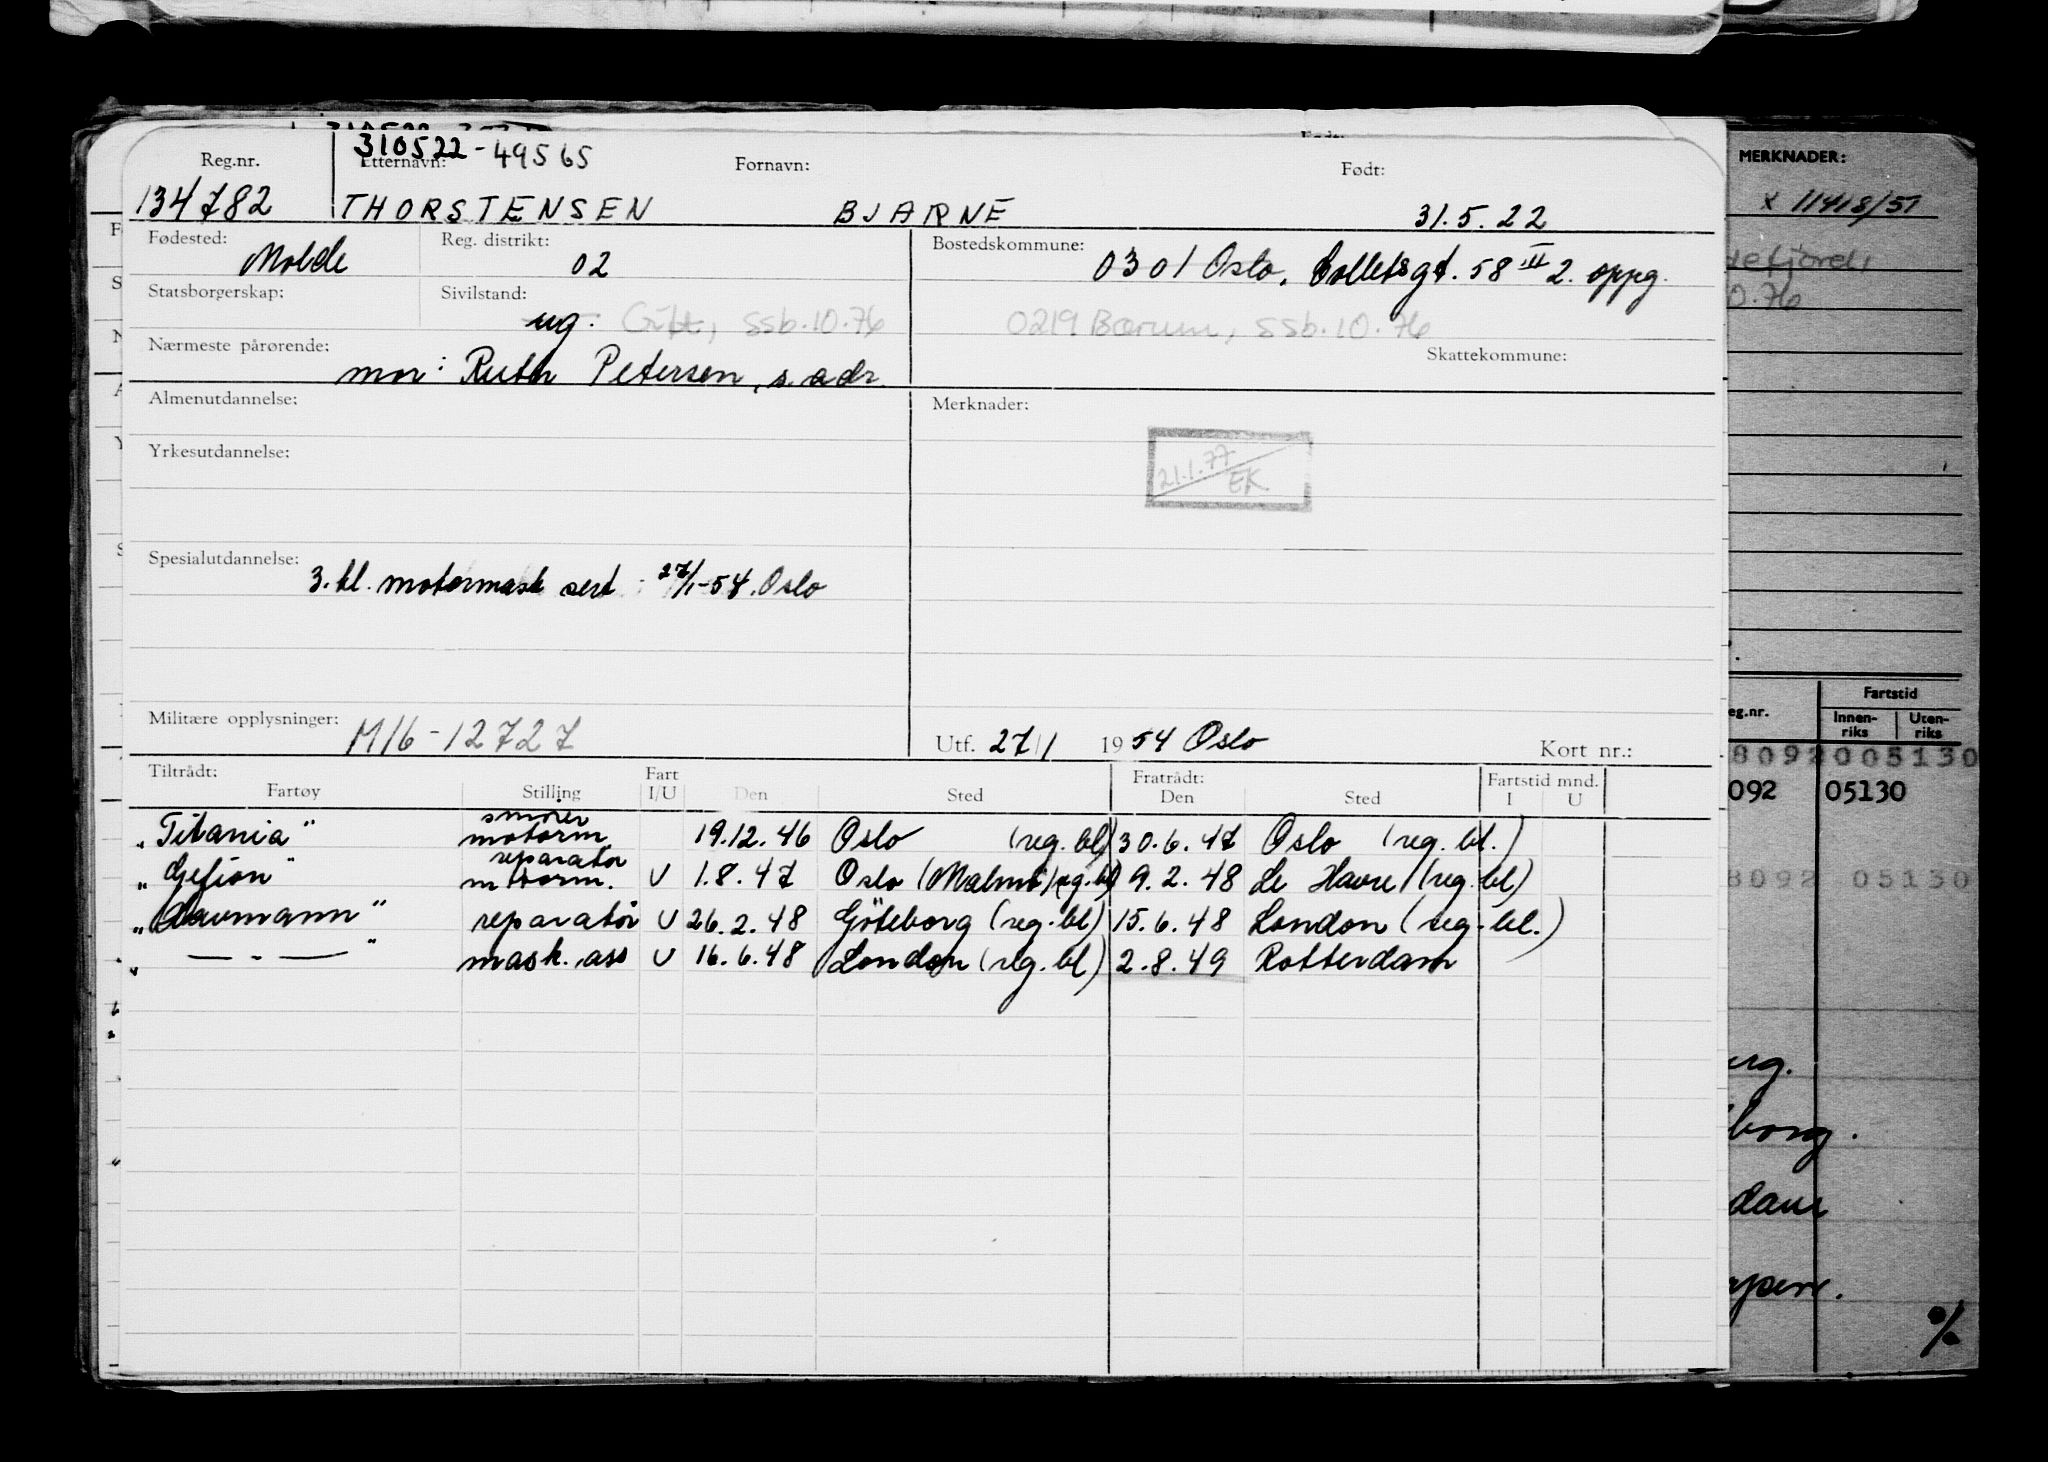 310522-49565
Reg.nr. Etternavn: Fornavn: Født:
134782 THORSTENSEN BJARNE 31.5.22
Fødested: Molde Reg. distrikt: 02 Bostedskommune: 0301 Oslo, Colletsgt. 58 III 2. oppg.
Statsborgerskap: Sivilstand: ug. Gift, ssb.10.76 0219 Bærum, ssb.10.76
Nærmeste pårørende: mor: Ruth Petersen, s. adr. Skattekommune:
Almenutdannelse: Merknader:
21.1.77 EK
Yrkesutdannelse:
Spesialutdannelse: 3. kl. motormask sert 27/1-54. Oslo
Militære opplysninger: M16-12727 Utf. 27/1 1954 Oslo Kort nr.:
Tiltrådt: Fart Fratrådt: Fartstid mnd.
Fartøy Stilling I/U Den Sted Den Sted I U
"Titania" smører motorm. 19.12.46 Oslo (reg. bl) 30.6.47 Oslo (reg. bl.)
"Gefion" reparatör motorm. U 1.8.47 Oslo (Malmö) (reg. bl) 9.2.48 Le Havre (reg. bl)
reparatör U 26.2.48 Göteborg (reg. bl) 15.6.48 London (reg. bl.)
" — . — " mask. ass U 16.6.48 London (reg. bl) 2.8.49 Rotterdam
MERKNADER:
x 11418/51
0.76
Fartstid
eg.nr. Innen-riks Uten-riks
8092 005130
092 05130
8092 05130
erg.
borg.
dam
%